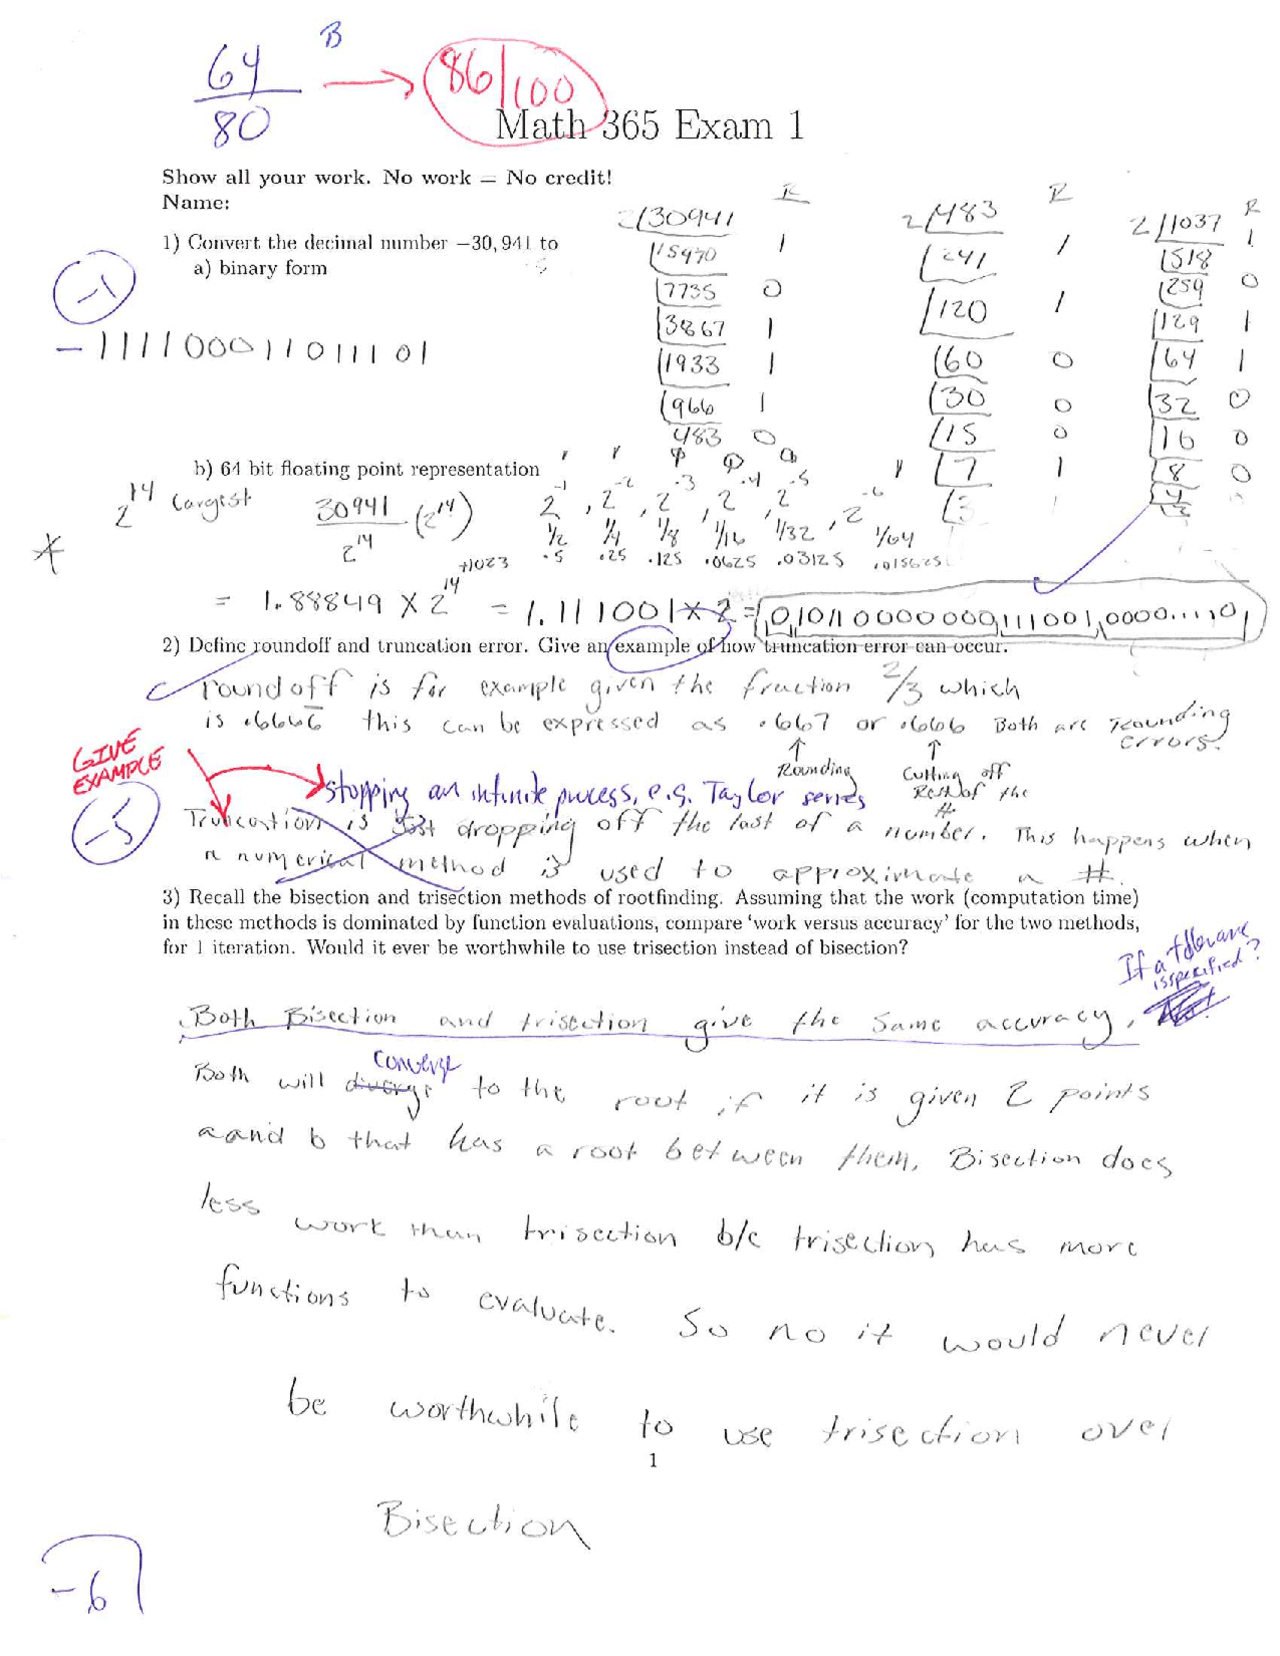 64
80
B
86/100
Math 365 Exam 1
Show all your work. No work = No credit!
Name:
1) Convert the decimal number −30,941 to
a) binary form
-1
-111100011011101
2/30941 R
15470 1
7735 0
3867 1
1933 1
966 1
483 0
2/483 R
241 1
120 1
60 0
30 0
15 0
7 1
3
2/1037 R
1
518
259 0
129 1
64 1
32 0
16 0
8 0
4
b) 64 bit floating point representation
2^14 largest 30941/2^14 (2^14)
2^-1, 2^-2, 2^-3, 2^-4, 2^-5, 2^-6
1/2 1/4 1/8 1/16 1/32 1/64
.5 .25 .125 .0625 .03125 .015625
+1023
= 1.88849 X 2^14 = 1.111001 x 2 =
2) Define roundoff and truncation error. Give an example of how truncation error can occur.
roundoff is for example given the fraction 2/3 which
is .6666 this can be expressed as .667 or .666 Both are rounding errors.
↑ Rounding ↑ Cutting off Rest of the #
GIVE EXAMPLE
-5
stopping an infinite process, e.g. Taylor series
Truncastion is just dropping off the last of a number. This happens when
a numerical method is used to approximate a #.
3) Recall the bisection and trisection methods of rootfinding. Assuming that the work (computation time)
in these methods is dominated by function evaluations, compare ‘work versus accuracy’ for the two methods,
for 1 iteration. Would it ever be worthwhile to use trisection instead of bisection?
If a tolerance
is specified?
Both Bisection and trisection give the same accuracy.
converge
Both will diverge to the root if it is given 2 points
a and b that has a root between them. Bisection does
less work than trisection b/c trisection has more
functions to evaluate. So no it would never
be worthwhile to use trisection over
1
Bisection
-6